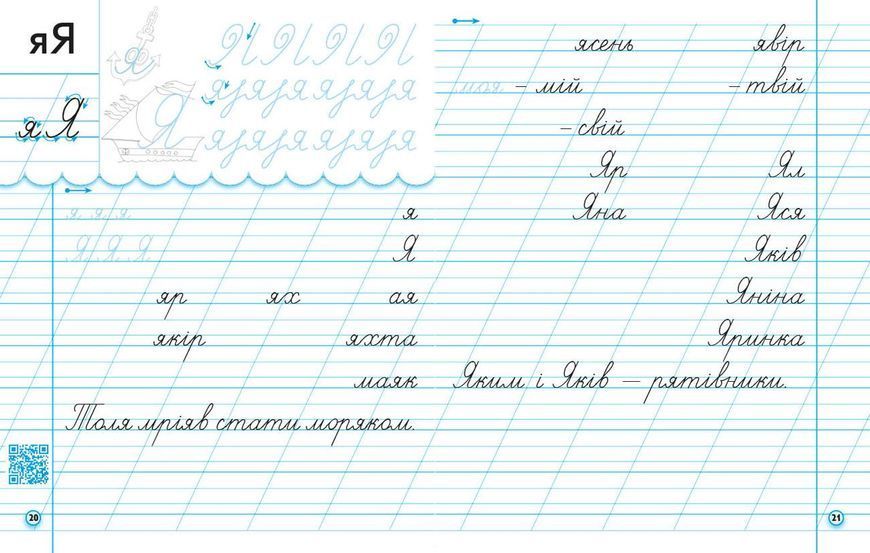 яЯ
я Я
я Я
Я Я Я Я
яяяяяяяя
яяяяяяяя
я я я я
Я Я Я Я
яр ях ая
якір яхта
маяк
Толя мріяв стати моряком.
20
ясень явір
моя – мій – твій
– свій
Яр Ял
Яна Яся
Яків
Яніна
Яринка
Яким і Яків — рятівники.
21